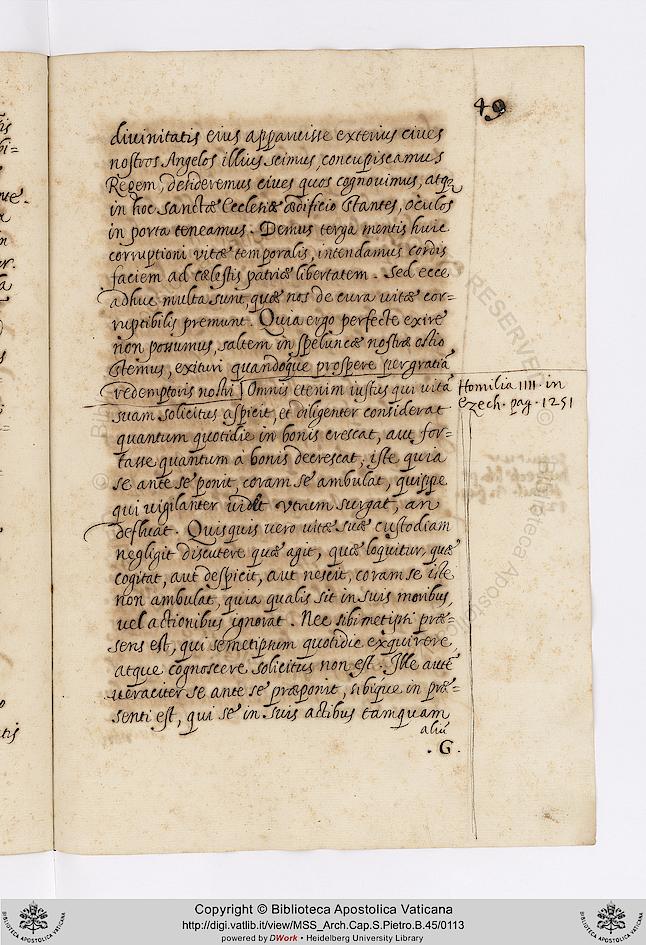 49
divinitatis eius apparuisse exterius cives
nostros Angelos illius scimus, concupiscamus
Regem, desideremus cives quos cognovimus, atq;
in hoc sanctæ Ecclesiæ ædificio stantes, oculos
in porta teneamus. Demus terga mentis huic
corruptioni vitæ temporalis, intendamus cordis
faciem ad cælestis patriæ libertatem. Sed ecce
adhuc multa sunt, quæ nos de cura vitæ cor=
ruptibilis premunt. Quia ergo perfecte exire
non possumus, saltem in speluncæ nostræ ostio
stemus, exituri quandoque prospere per gratiã
redemptoris nostri] Omnis etenim iustus qui vitã
suam solicitus aspicit, et diligenter considerat
quantum quotidie in bonis crescat, aut for=
tasse quantum à bonis decrescat, iste quia
se ante se ponit, coram se ambulat, quippe
qui vigilanter videt utrum surgat, an
defluat. Quisquis vero vitæ suæ custodiam
negligit discutere quæ agit, quæ loquitur, quæ
cogitat, aut despicit, aut nescit, coram se iste
non ambulat, quia qualis sit in suis moribus,
vel actionibus ignorat. Nec sibimetipsi præ=
sens est, qui semetipsum quotidie exquirere,
atque cognoscere solicitus non est. Ille autẽ
veraciter se ante se præponit, sibique in præ=
senti est, qui se in suis actibus tamquam
aliũ
.G.
Homilia IIII. in
Ezech. pag. 1251
Copyright © Biblioteca Apostolica Vaticana
http://digi.vatlib.it/view/MSS_Arch.Cap.S.Pietro.B.45/0113
powered by DWork • Heidelberg University Library